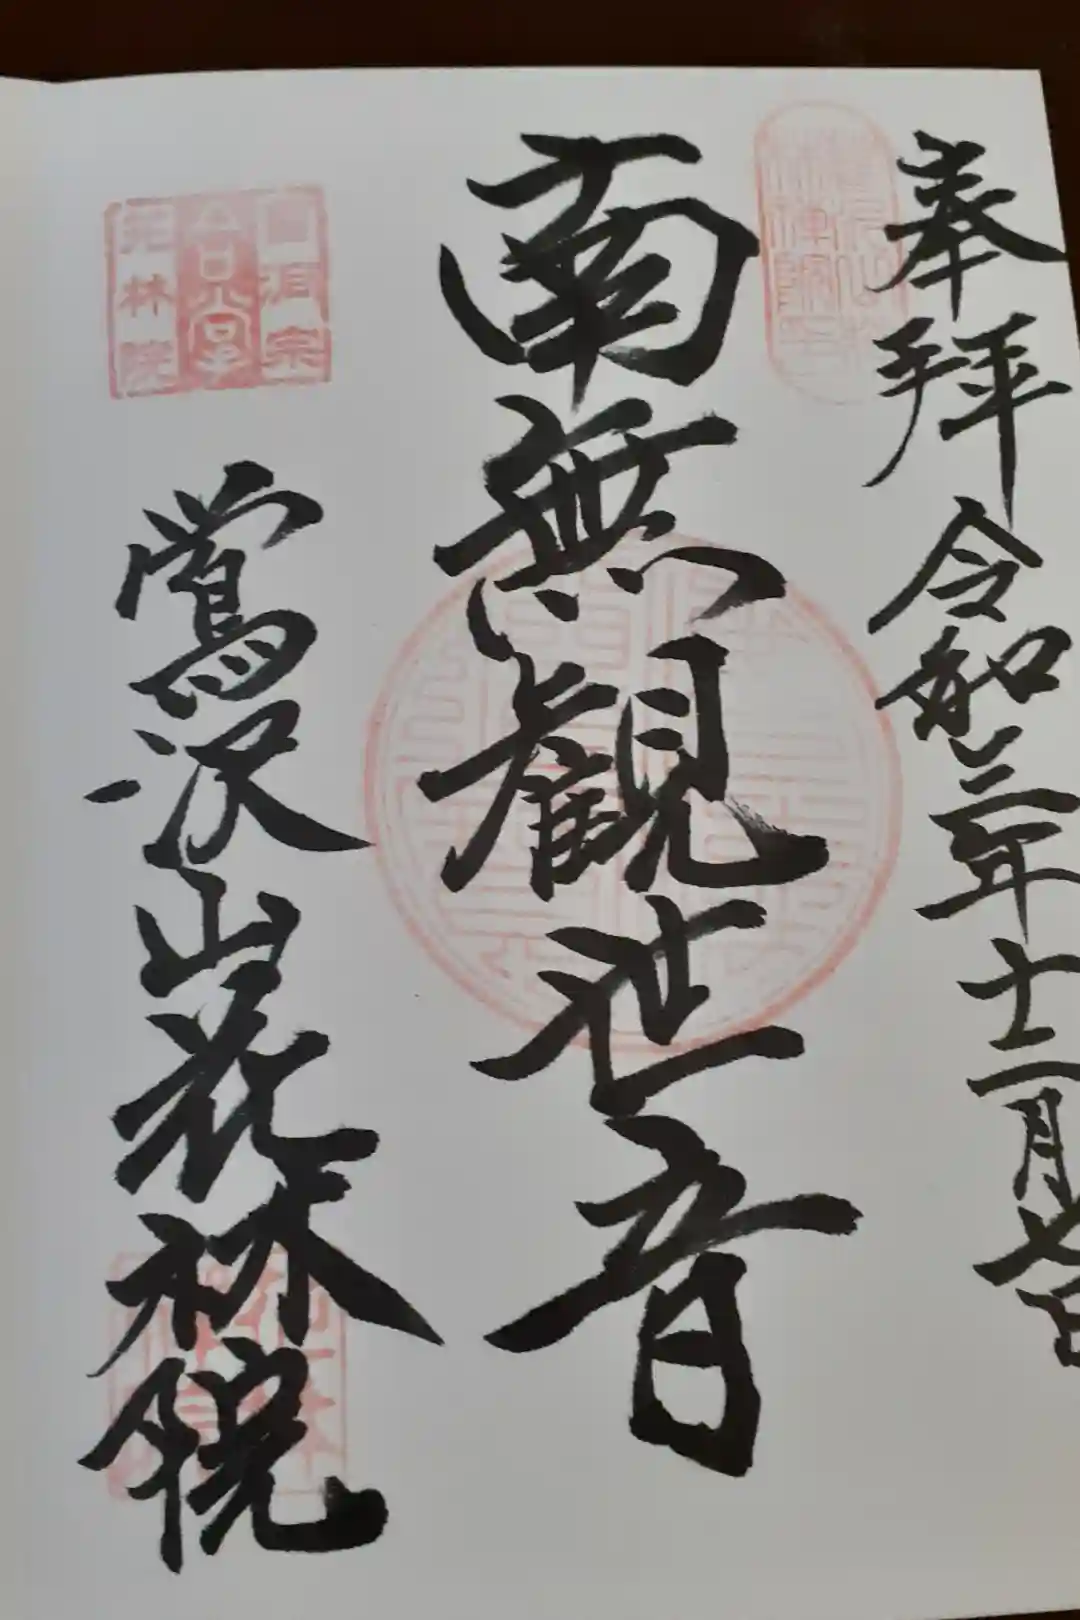 奉拝 令和三年十二月七日
南無観世音
鶯沢山花林院
曹洞宗
花林院